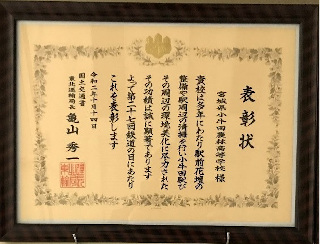 表彰状
宮城県小牛田農林高等学校 様
貴校は多年にわたり駅前花壇の
整備や駅周辺の清掃を行い小牛田駅及び
その周辺の環境美化に尽力された
その功績は誠に顕著であります
よって第二十七回鉄道の日にあたり
これを表彰します
令和二年十月十四日
国土交通省
東北運輸局長 亀山 秀一